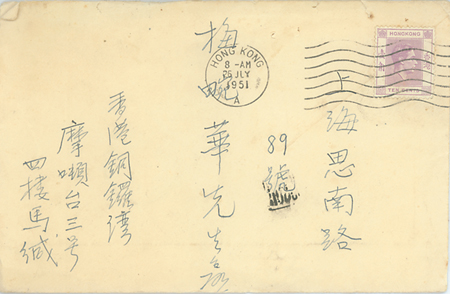 HONGKONG
TEN CENTS
HONG KONG
8 - AM
25 JLY
1951
A
上海思南路
89號
梅畹華先生啟
香港銅鑼湾
摩噸台三号
四楼馬緘